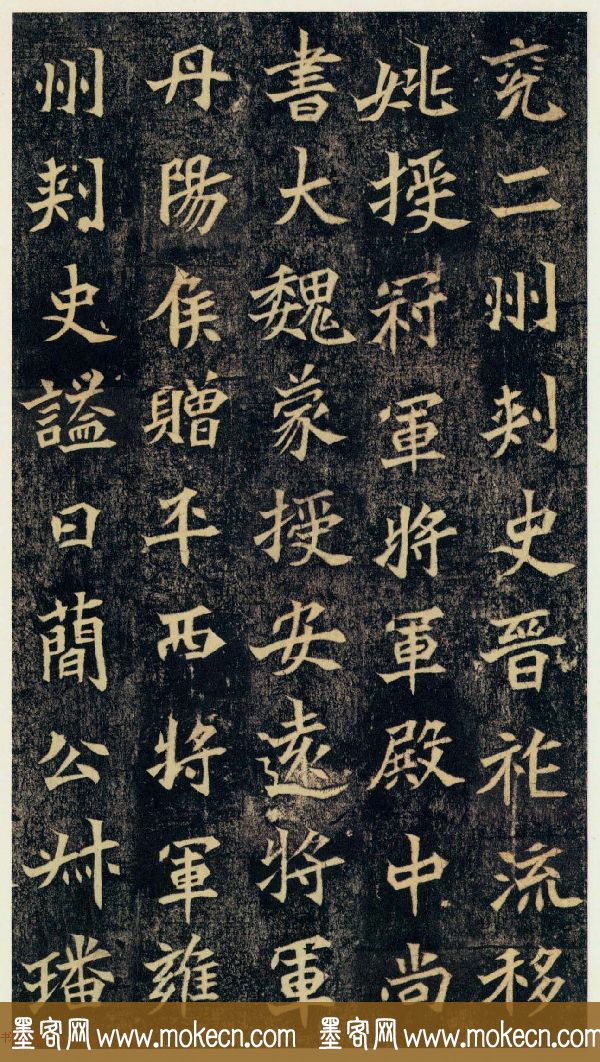 兖二州刺史晉祚流移
姚授冠軍將軍殿中尚
書大魏蒙授安遠將軍
丹陽侯贈平西將軍雍
州刺史謚曰簡公叔璠
墨客网 www.mokecn.com 墨客网 www.mokecn.com